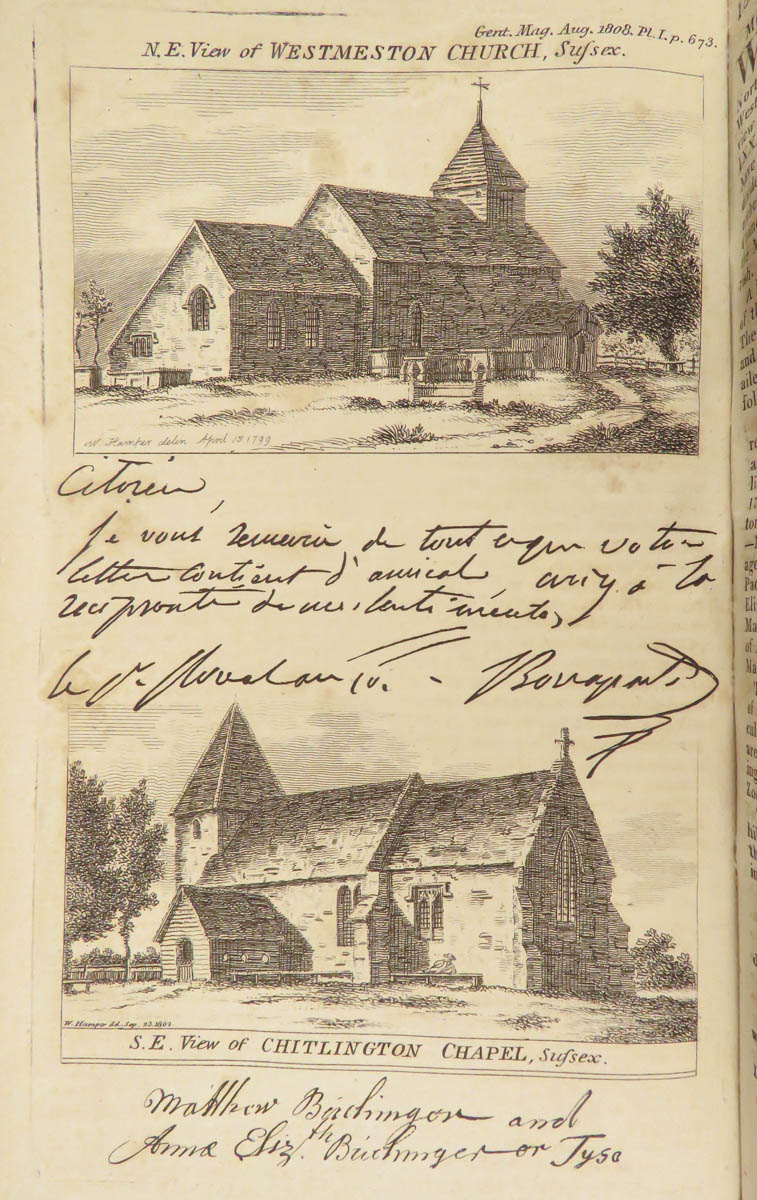 Gent. Mag. Aug. 1808. Pl. I. p. 673.
N.E. View of WESTMESTON CHURCH, Suſsex.
W. Hamper delin April 15 1799
Citoien,
Je vous remercie de tout ce que votre
lettre contient d'amical croiez à la
reciprocité de mes sentiments,
le Bonaparte
W. Hamper del. Sep. 23. 1802
S.E. View of CHITLINGTON CHAPEL, Suſsex.
Matthew Buchinger and
Anna Eliz.th Buchinger or Tyse